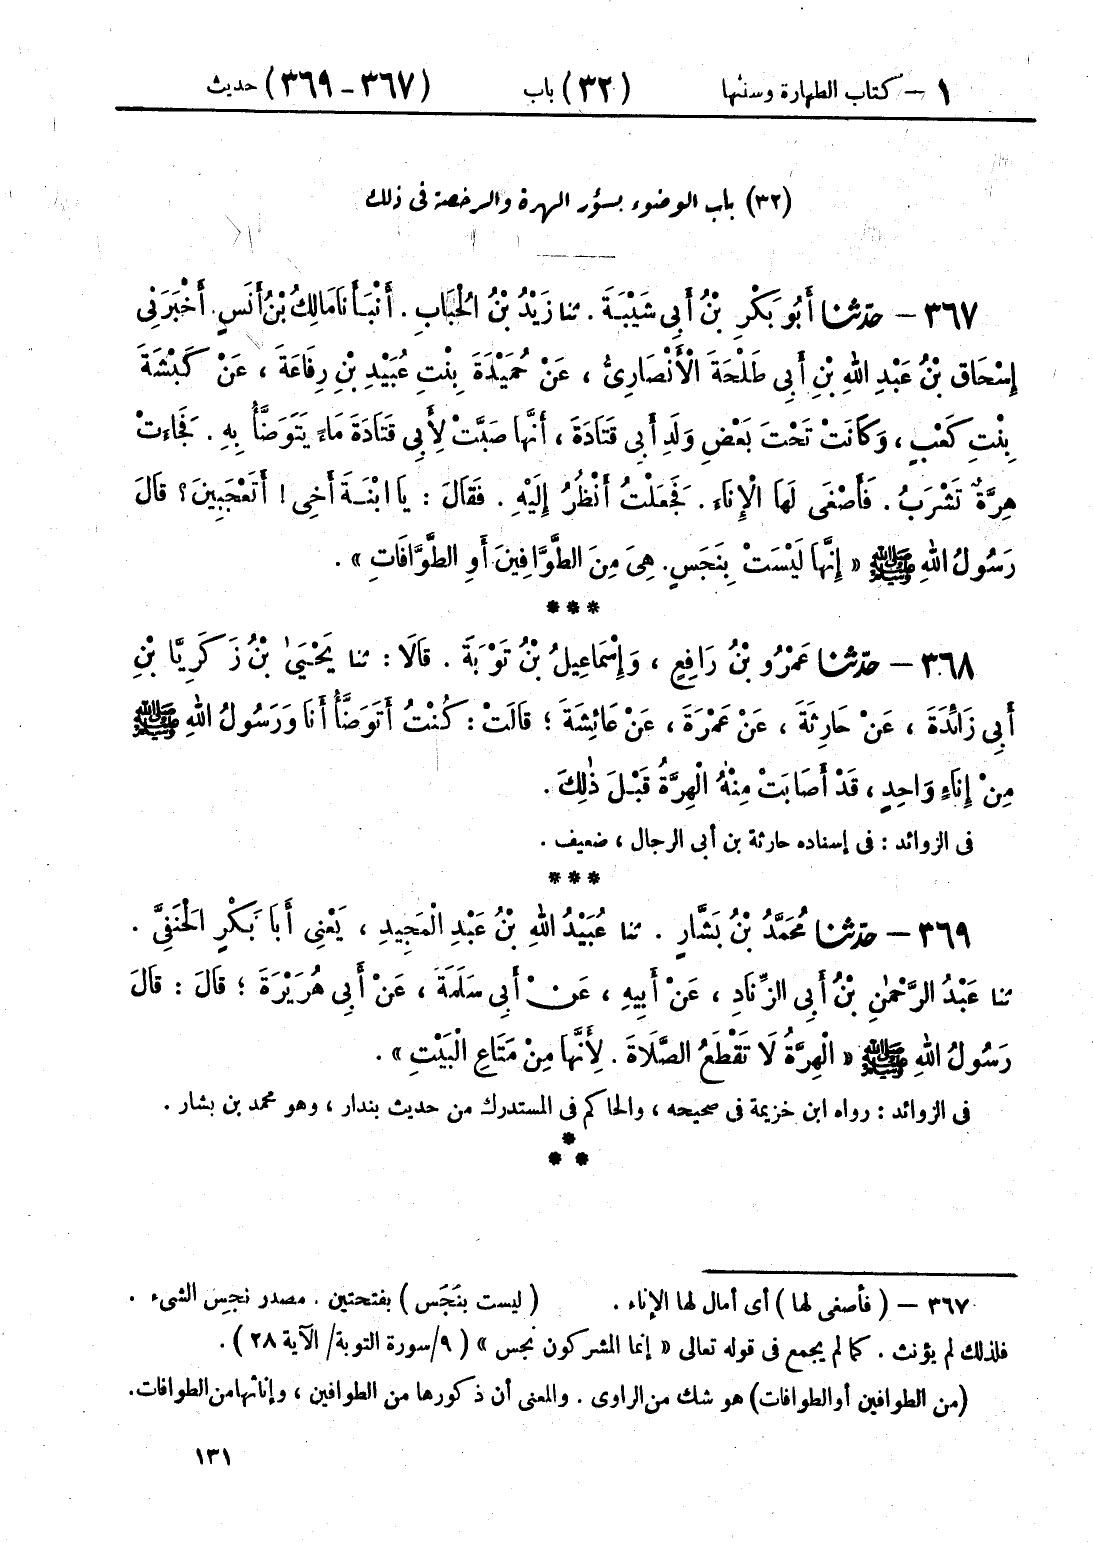 ١ – كتاب الطهارة وسننها (٣٢) باب (٣٦٧ – ٣٦٩) حديث
(٣٢) باب الوضوء بسؤر الهرة والرخصة فى ذلك
٣٦٧ – حَدَّثَنَا أَبُو بَكْرِ بْنُ أَبِي شَيْبَةَ . ثنا زَيْدُ بْنُ الْحُبَابِ . أَنْبَأَنَا مَالِكُ بْنُ أَنَسٍ . أَخْبَرَنِى
إِسْحَاق بْنُ عَبْدِ اللهِ بْنِ أَبِي طَلْحَةَ الْأَنْصَارِىُّ ، عَنْ حُمَيْدَةَ بِنْتِ عُبَيْدِ بْنِ رِفَاعَةَ ، عَنْ كَبْشَةَ
بِنْتِ كَعْبٍ ، وَكَانَتْ تَحْتَ بَعْضِ وَلَدِ أَبِى قَتَادَةَ ، أَنَّهَا صَبَّتْ لِأَبِى قَتَادَةَ مَاءً يَتَوَضَّأُ بِهِ . فَجَاءَتْ
هِرَّةٌ تَشْرَبُ . فَأَصْغَى لَهَا الْإِنَاءَ . فَجَعَلْتُ أَنْظُرُ إِلَيْهِ . فَقَالَ : يَا ابْنَةَ أَخِى ! أَتَعْجَبِينَ ؟ قَالَ
رَسُولُ اللهِ ﷺ « إِنَّهَا لَيْسَتْ بِنَجَسٍ. هِىَ مِنَ الطَّوَّافِينَ أَوِ الطَّوَّافَاتِ » .
***
٣٦٨ – حَدَّثَنَا عَمْرُو بْنُ رَافِعٍ ، وَإِسْمَاعِيلُ بْنُ تَوْبَةَ . قَالَا : ثنا يَحْيَىٰ بْنُ زَكَرِيَّا بْنِ
أَبِى زَائِدَةَ ، عَنْ حَارِثَةَ ، عَنْ عَمْرَةَ ، عَنْ عَائِشَةَ ؛ قَالَتْ : كُنْتُ أَتَوَضَّأُ أَنَا وَرَسُولُ اللهِ ﷺ
مِنْ إِنَاءٍ وَاحِدٍ ، قَدْ أَصَابَتْ مِنْهُ الْهِرَّةُ قَبْلَ ذٰلِكَ .
فى الزوائد : فى إسناده حارثة بن أبى الرجال ، ضعيف .
***
٣٦٩ – حَدَّثَنَا مُحَمَّدُ بْنُ بَشَّارٍ . ثنا عُبَيْدُ اللهِ بْنُ عَبْدِ الْمَجِيدِ ، يَعْنِى أَبَا بَكْرٍ الْحَنَفِىَّ .
ثنا عَبْدُ الرَّحْمٰنِ بْنُ أَبِى الزِّنَادِ ، عَنْ أَبِيهِ ، عَنْ أَبِى سَلَمَةَ ، عَنْ أَبِى هُرَيْرَةَ ؛ قَالَ : قَالَ
رَسُولُ اللهِ ﷺ « الْهِرَّةُ لَا تَقْطَعُ الصَّلَاةَ . لِأَنَّهَا مِنْ مَتَاعِ الْبَيْتِ » .
فى الزوائد : رواه ابن خزيمة فى صحيحه ، والحاكم فى المستدرك من حديث بندار ، وهو محمد بن بشار .
*
* *
٣٦٧ – ( فأصغى لها ) أى أمال لها الإناء . ( ليست بنَجَس ) بفتحتين . مصدر نجِس الشىء .
فلذلك لم يؤنث . كما لم يجمع فى قوله تعالى « إنما المشركون نجس » ( ٩/سورة التوبة/ الآية ٢٨ ) .
(من الطوافين أو الطوافات) هو شك من الراوى . والمعنى أن ذكورها من الطوافين ، وإناثها من الطوافات.
١٣١